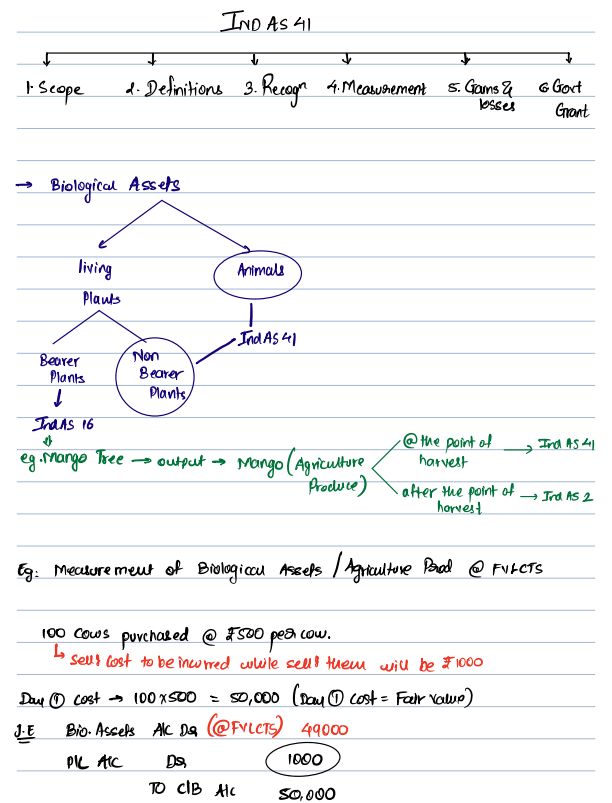 IND AS 41
1. Scope 2. Definitions 3. Recogn 4. Measurement 5. Gains & losses 6. Govt Grant
→ Biological Assets
living Plants
Animals
Ind AS 41
Bearer Plants
Non Bearer Plants
Ind AS 16
eg. Mango Tree → output → Mango (Agriculture Produce)
@ the point of harvest → Ind AS 41
after the point of harvest → Ind AS 2
Eg: Measurement of Biological Assets / Agriculture Prod @ FVLCTS
100 Cows purchased @ ₹500 per cow.
↳ Sell! Cost to be incurred while sell! them will be ₹1000
Day ① Cost → 100 x 500 = 50,000 (Day ① Cost = Fair Value)
J.E Bio. Assets A/C Dr (@FVLCTS) 49000
P/L A/C Dr 1000
To C/B A/c 50,000